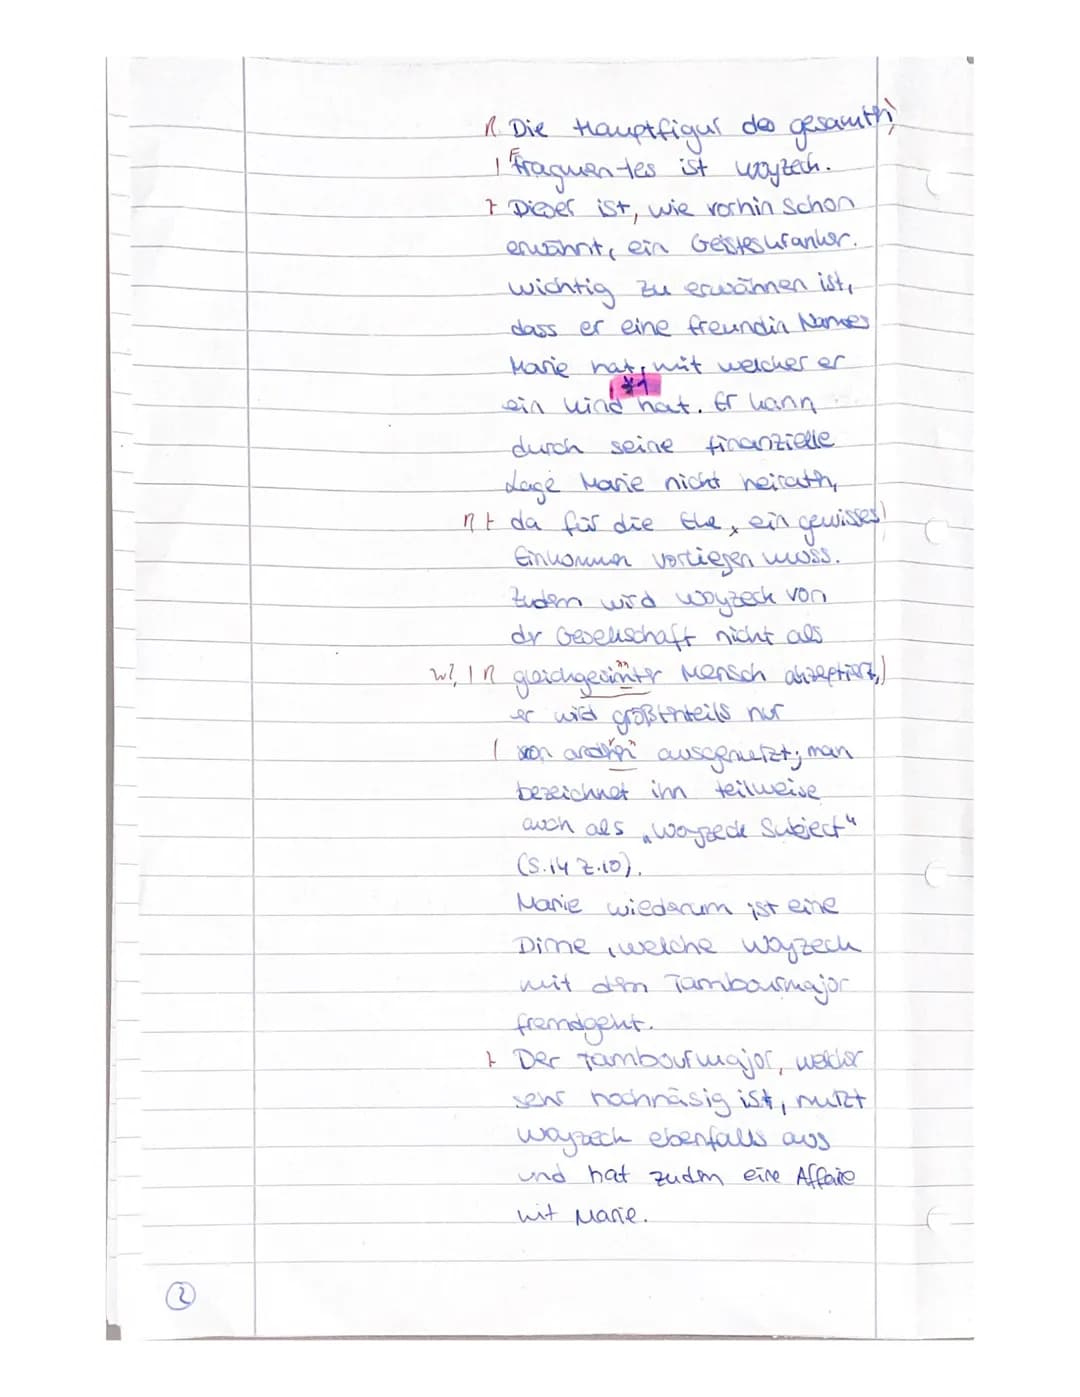 R Die Hauptfigur des gesamth
| F fragmentes ist Woyzeck.
Z Dieser ist, wie vorhin schon
erwähnt, ein Geisteskranker.
wichtig zu erwähnen ist,
dass er eine freundin Names
Marie hat, mit welcher er
*1
ein kind hat. Er kann
durch seine finanzielle
Lage Marie nicht heirath,
R Z da für die Ehe, ein gewisses
Einkommen vorliegen muss.
Zudem wird Woyzeck von
dr Gesellschaft nicht als
W?, | R gleichgesinnter Mensch akzeptiert,
er wird größtenteils nur
| von andren ausgenutzt, man
bezeichnet ihn teilweise
auch als „Woyzeck Subject"
(S.14 Z.10).
Marie wiederum ist eine
Dirne, welche Woyzeck
mit dem Tambourmajor
fremdgeht.
Z Der Tambourmajor, welcher
sehr hochnäsig ist, nutzt
Woyzeck ebenfalls aus
und hat zudem eine Affaire
mit Marie.
2